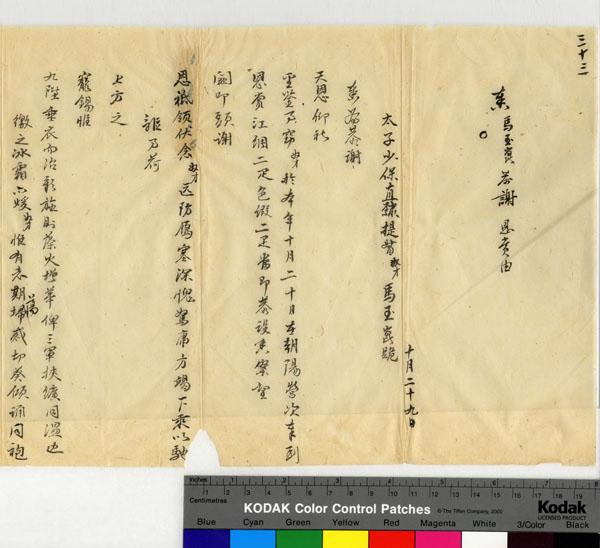 三十三
奏馬玉崑恭謝 恩賞由
十月二十九日
太子少保直隸提督奴才馬玉崑跪
奏為恭謝
天恩仰祈
聖鑒事竊奴才於本年十月二十日在朝陽營次奉到
恩賞江綢二疋色緞二疋當即恭設香案望
闕叩頭謝
恩祗領伏念奴才
防雁塞深愧駑庸方竭下乘以馳
詎乃荷
上方之
寵錫
九陛垂衣而治
火增華俾三軍挾纊同溫
之冰霜
奴才惟有
感切葵傾誦同袍
Inches
Centimetres
KODAK Color Control Patches
© The Tiffen Company, 2000
Kodak
LICENSED PRODUCT
Blue Cyan Green Yellow Red Magenta White 3/Color Black